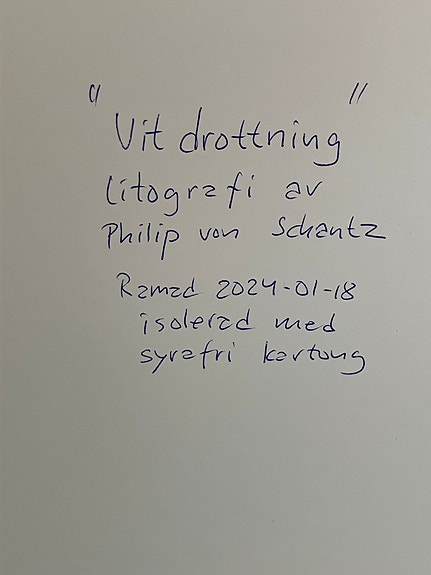 " Vit drottning "
litografi av
Philip von Schantz
Ramad 2024-01-18
isolerad med
syrafri kartong